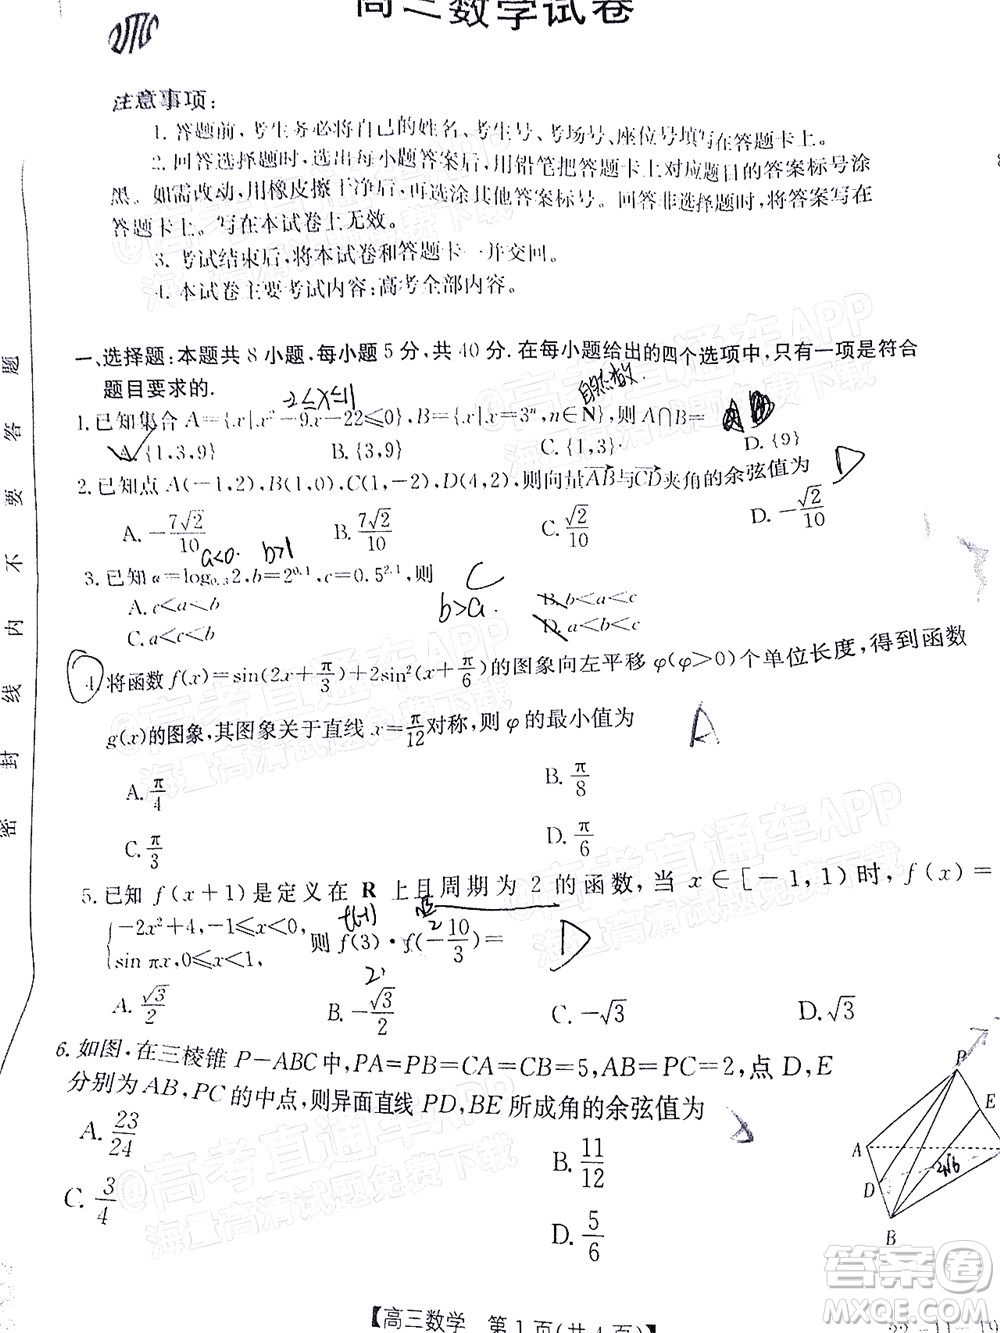 高三数学试卷
注意事项:
1. 答题前,考生务必将自己的姓名、考生号、考场号、座位号填写在答题卡上。
2. 回答选择题时,选出每小题答案后,用铅笔把答题卡上对应题目的答案标号涂
黑。如需改动,用橡皮擦干净后,再选涂其他答案标号。回答非选择题时,将答案写在
答题卡上。写在本试卷上无效。
3. 考试结束后,将本试卷和答题卡一并交回。
4. 本试卷主要考试内容:高考全部内容。
一、选择题:本题共 8 小题,每小题 5 分,共 40 分. 在每小题给出的四个选项中,只有一项是符合
题目要求的.
-2≤x≤11 自然数
1. 已知集合 A={x|x²-9x-22≤0},B={x|x=3ⁿ,n∈N},则 A∩B=
A. {1,3,9} B. {3,9} C. {1,3} D. {9}
2. 已知点 A(-1,2),B(1,0),C(1,-2),D(4,2),则向量AB与CD夹角的余弦值为 D
A. -7√2/10 B. 7√2/10 C. √2/10 D. -√2/10
a<0. b>1
3. 已知 a=log₀.₃2,b=2^0.1,c=0.5^2.1,则 C
A. c<a<b b>a. B. b<a<c
C. a<c<b D. a<b<c
4. 将函数 f(x)=sin(2x+π/3)+2sin²(x+π/6)的图象向左平移 φ(φ>0)个单位长度,得到函数
g(x)的图象,其图象关于直线 x=π/12对称,则 φ 的最小值为 A
A. π/4 B. π/8
C. π/3 D. π/6
5. 已知 f(x+1)是定义在 R 上且周期为 2 的函数,当 x∈[-1,1)时,f(x)=
f(-1)
{-2x²+4,-1≤x<0, sin πx,0≤x<1, 则 f(3)·f(-10/3)= D
2
A. √3/2 B. -√3/2 C. -√3 D. √3
6. 如图,在三棱锥 P-ABC中,PA=PB=CA=CB=5,AB=PC=2,点 D,E
分别为 AB,PC 的中点,则异面直线 PD,BE 所成角的余弦值为
A. 23/24 B. 11/12
C. 3/4 D. 5/6
P
E
A
D
B
2√6
【高三数学 第 1 页(共 4 页)】
密 封 线 内 不 要 答 题
@高考直通车APP
海量高清试题免费下载
答案圈
MXQE.COM